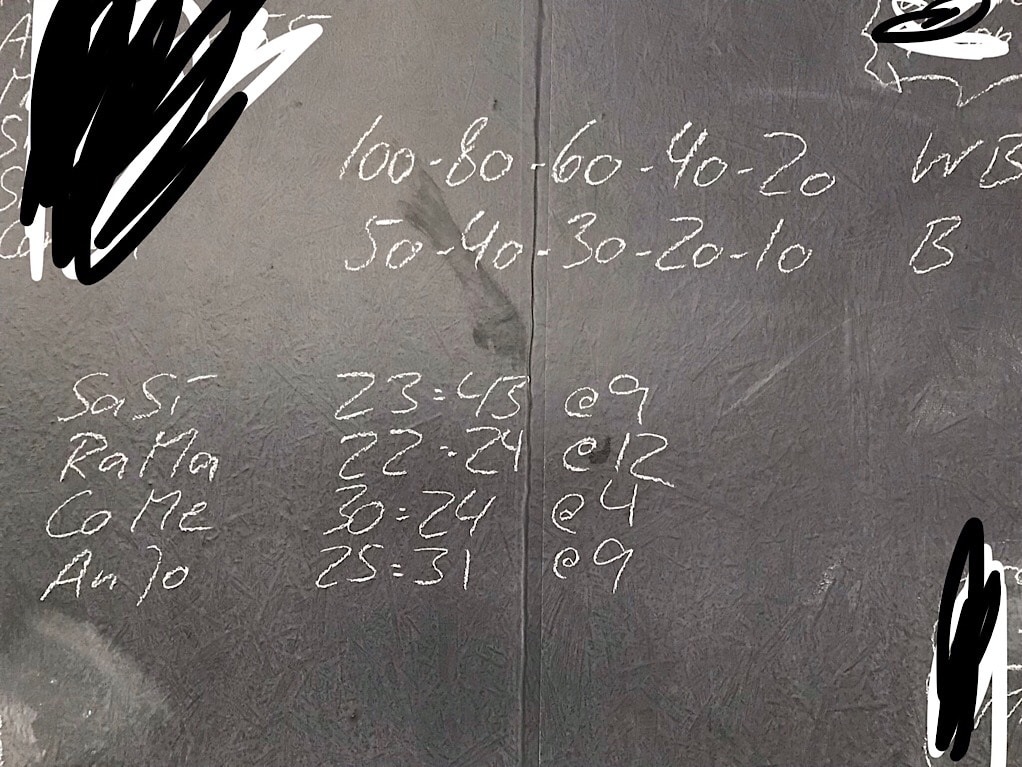 100-80-60-40-20 WB
50-40-30-20-10 B
SaSi 23:43 @9
RaMa 22:24 @12
CoMe 30:24 @4
AnJo 25:31 @9